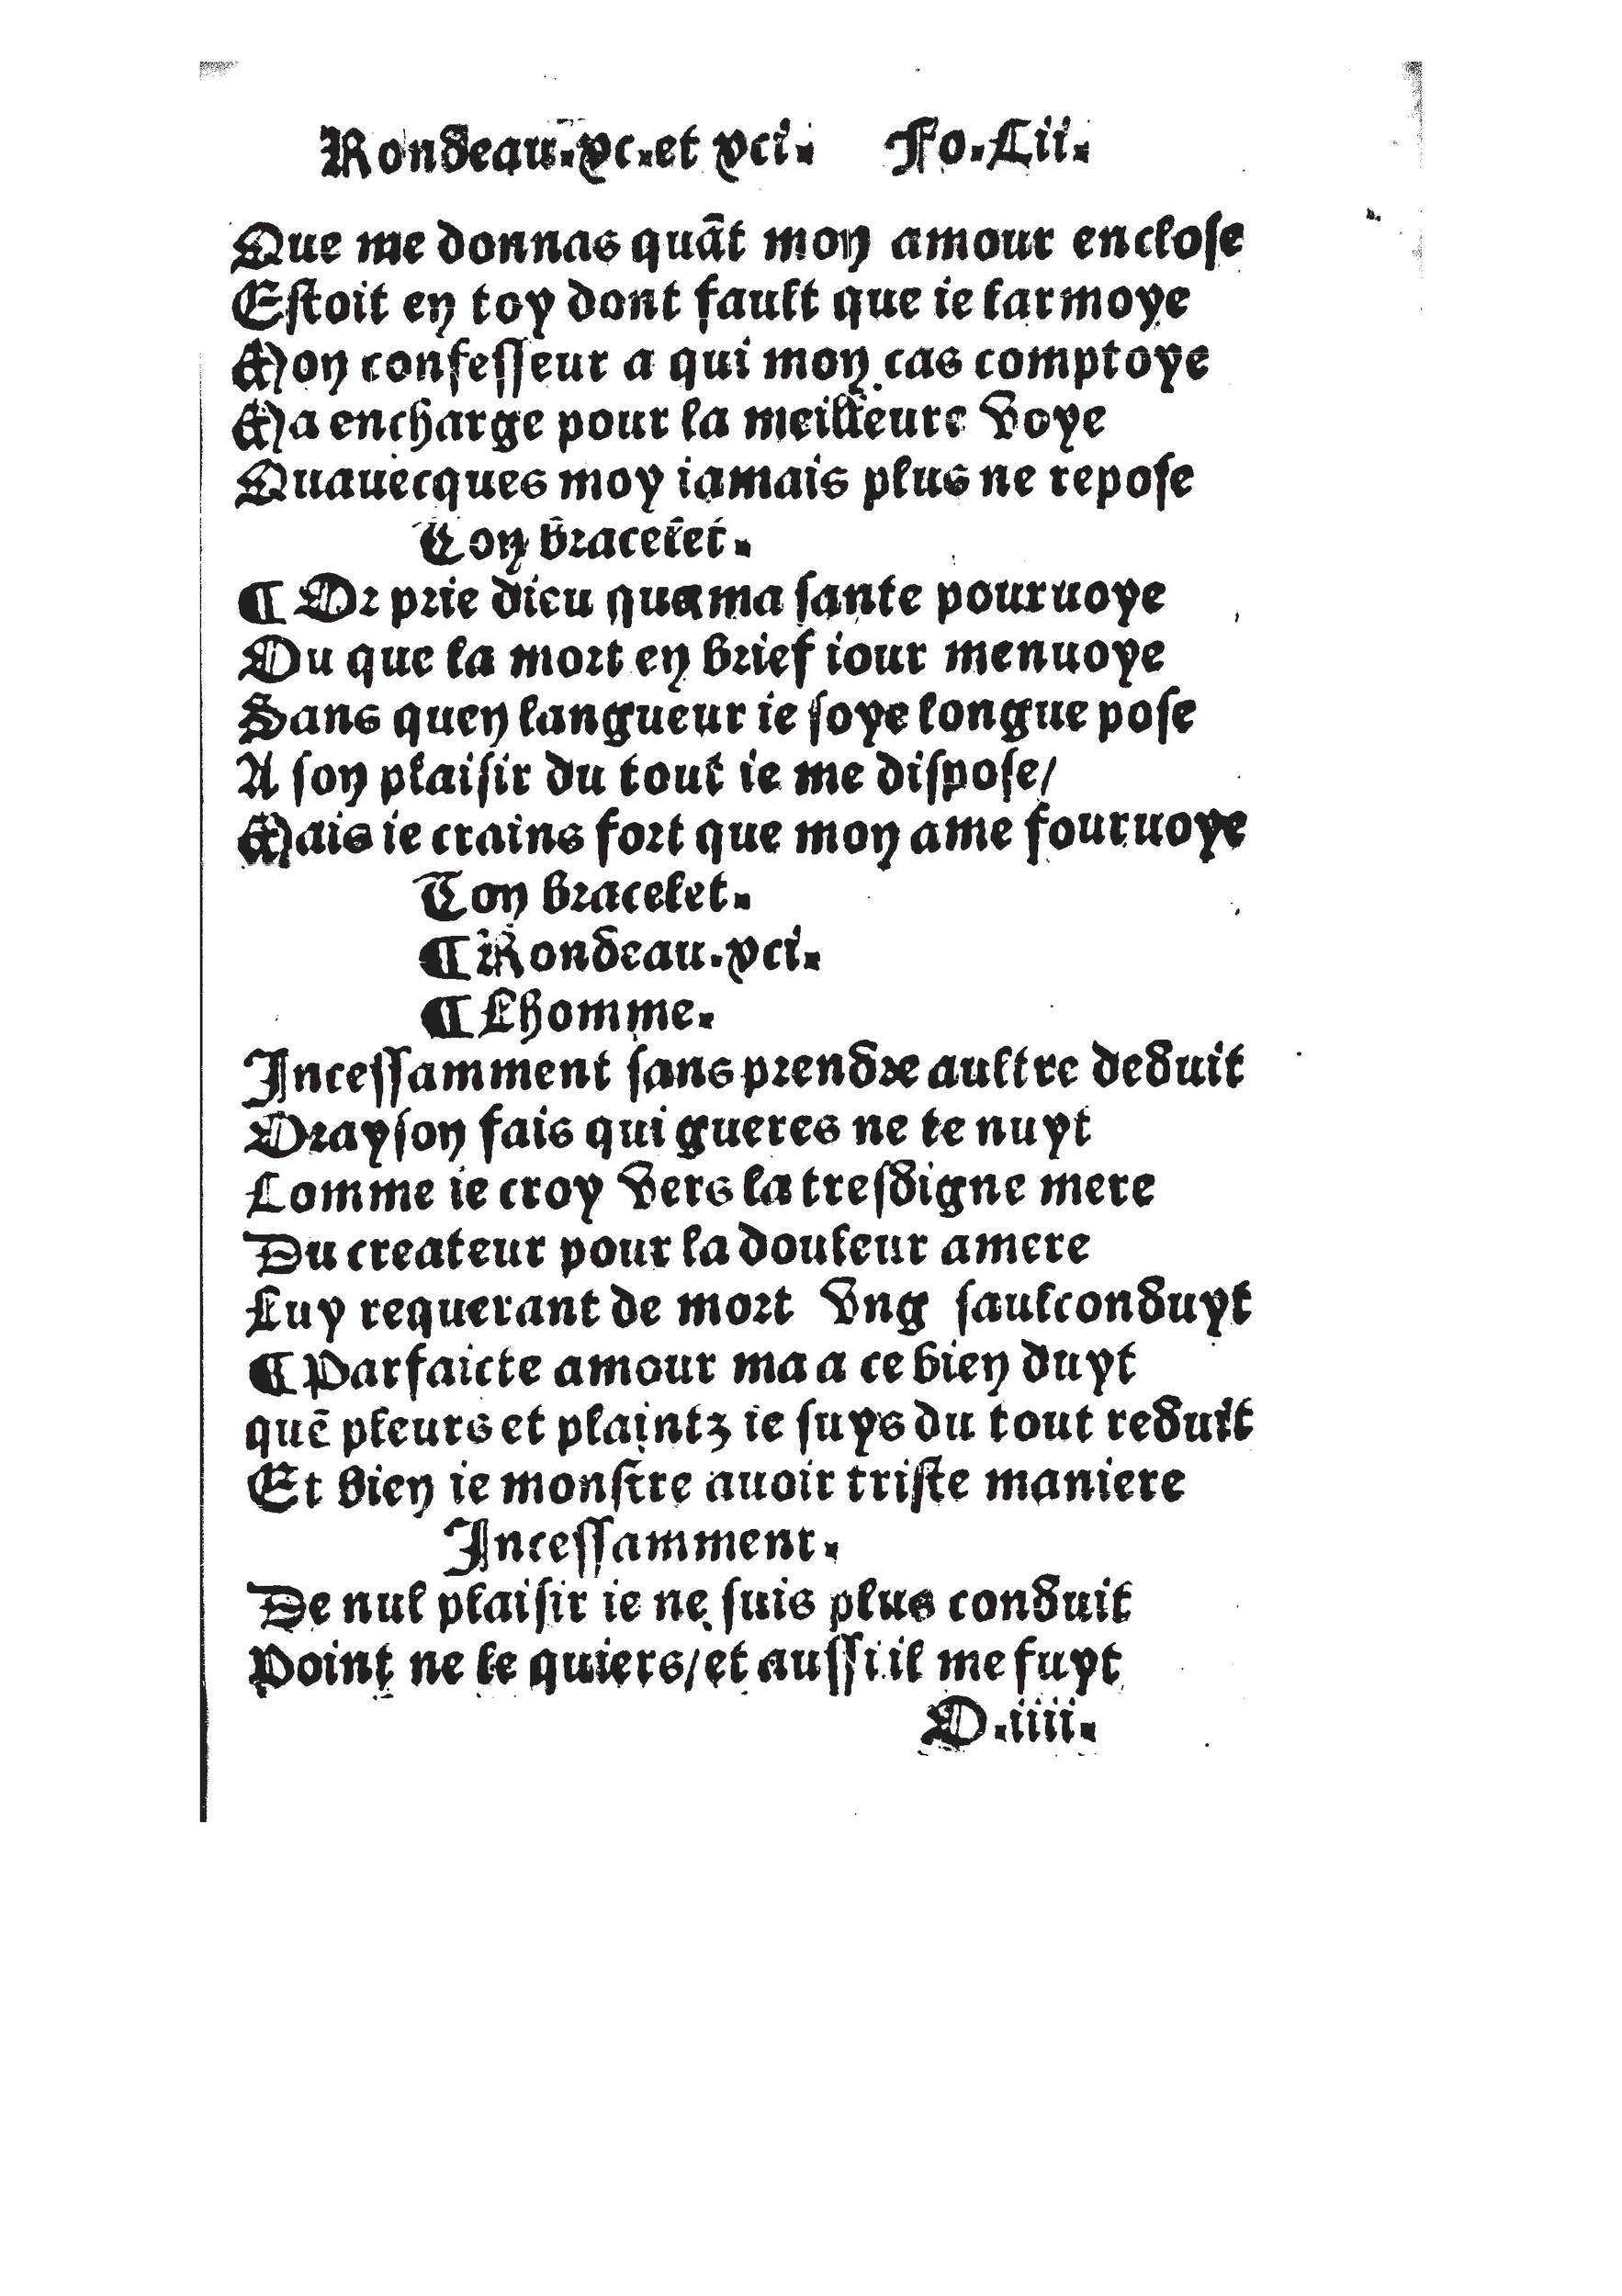 Rondeau.xc.et xci. Fo.Lii.
Que me donnas quāt mon amour enclose
Estoit en toy dont fault que ie larmoye
Mon confesseur a qui mon cas comptoye
Ma encharge pour la meilleure voye
Quauecques moy iamais plus ne repose
Ton bracelet.
¶ Or prie dieu qua ma sante pouruoye
Ou que la mort en brief iour menuoye
Sans quen langueur ie soye longue pose
A son plaisir du tout ie me dispose/
Mais ie crains fort que mon ame fouruoye
Ton bracelet.
¶ Rondeau.xci.
¶ Lhomme.
Incessamment sans prendre aultre deduit
Orayson fais qui gueres ne te nuyt
Comme ie croy vers la tresdigne mere
Du createur pour la douleur amere
Luy requerant de mort vng saulconduyt
¶ Parfaicte amour ma a ce bien duyt
quē pleurs et plaintz ie suys du tout reduit
Et bien ie monstre auoir triste maniere
Incessamment.
De nul plaisir ie ne suis plus conduit
Point ne le quiers/et aussi il me fuyt
O.iiii.